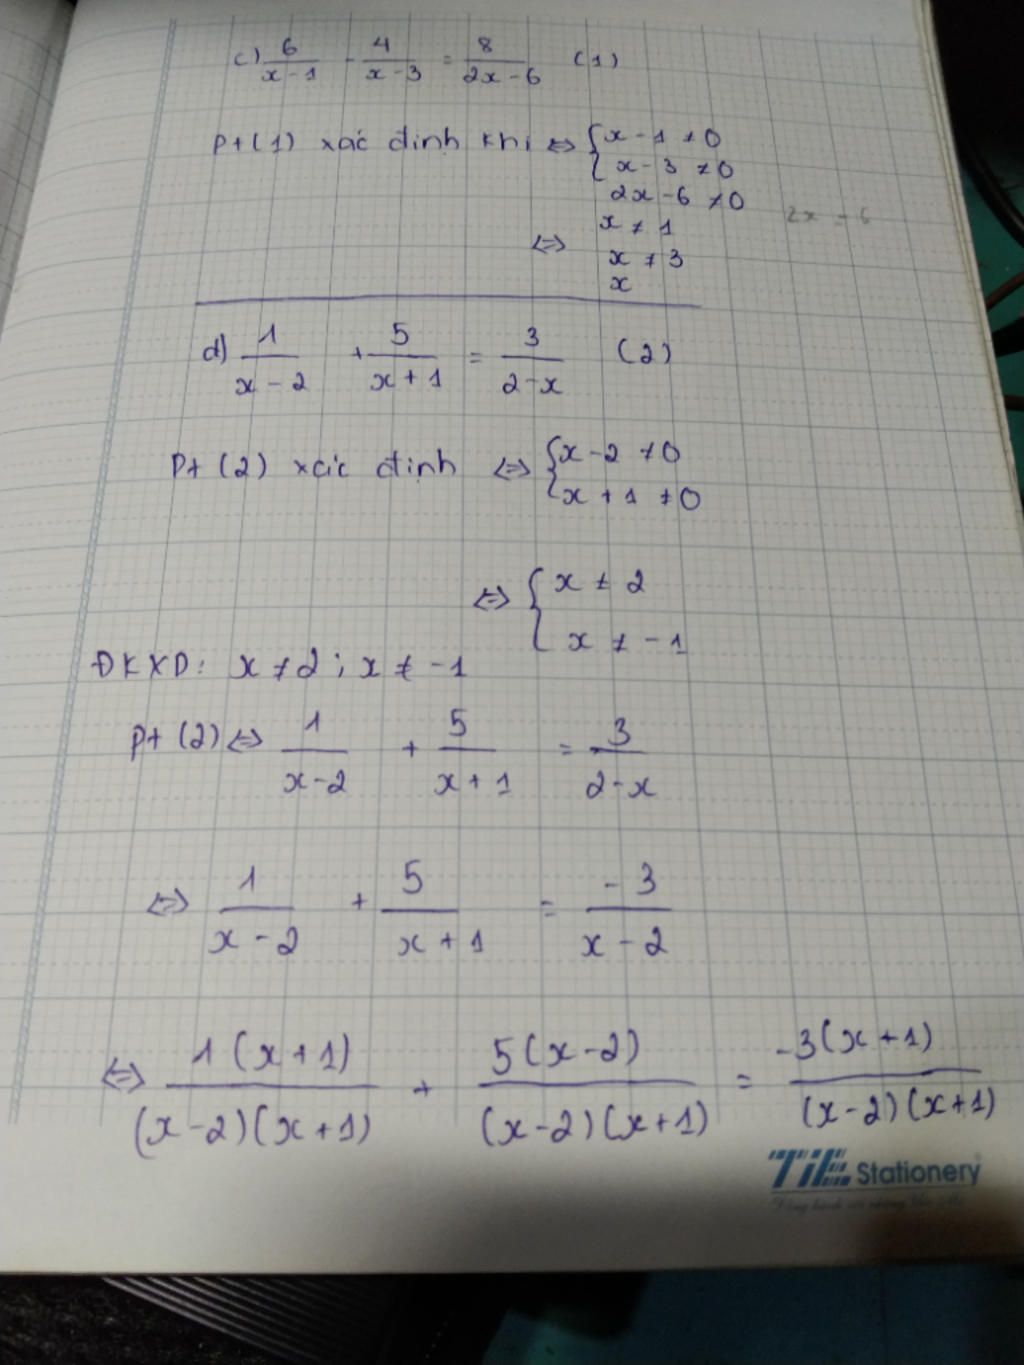 c) 6/(x-1) - 4/(x-3) = 8/(2x-6) (1)
pt (1) xác định khi ⇔ { x - 1 ≠ 0
x - 3 ≠ 0
2x - 6 ≠ 0
2x = 6
⇔ x ≠ 1
x ≠ 3
x
d) 1/(x-2) + 5/(x+1) = 3/(2-x) (2)
Pt (2) xác định ⇔ { x - 2 ≠ 0
x + 1 ≠ 0
⇔ { x ≠ 2
x ≠ -1
ĐKXĐ: x ≠ 2 ; x ≠ -1
pt (2) ⇔ 1/(x-2) + 5/(x+1) = 3/(2-x)
⇔ 1/(x-2) + 5/(x+1) = -3/(x-2)
⇔ 1(x+1)/((x-2)(x+1)) + 5(x-2)/((x-2)(x+1)) = -3(x+1)/((x-2)(x+1))
TiE Stationery